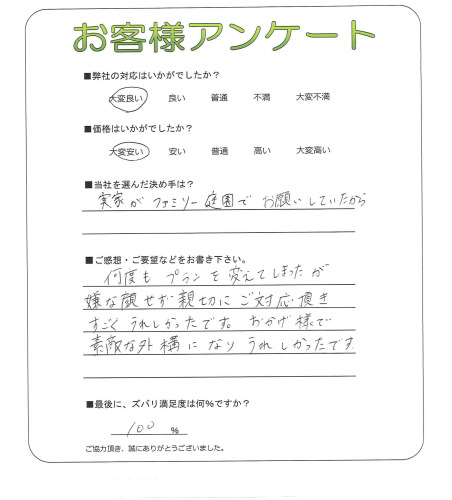 お客様アンケート
■弊社の対応はいかがでしたか？
大変良い 良い 普通 不満 大変不満
■価格はいかがでしたか？
大変安い 安い 普通 高い 大変高い
■当社を選んだ決め手は？
実家がファミリー庭園でお願いしていたから
■ご感想・ご要望などをお書き下さい。
何度もプランを変えてしまったが
嫌な顔せず親切にご対応頂き
すごくうれしかったです。おかげ様で
素敵な外構になりうれしかったです。
■最後に、ズバリ満足度は何％ですか？
100 ％
ご協力頂き、誠にありがとうございました。